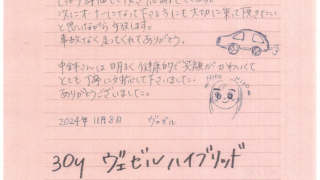 次にオーナーになって下さる方にも大切に乗って頂きたい
と思いながら手放します。
事故なく走ってくれてありがとう。
中年さんは明るく健康的で笑顔がかわいくて
とても丁寧に対応して下さいました。
ありがとうございました。
2024年 11月8日 ヴェゼル
30y ヴェゼルハイブリッド